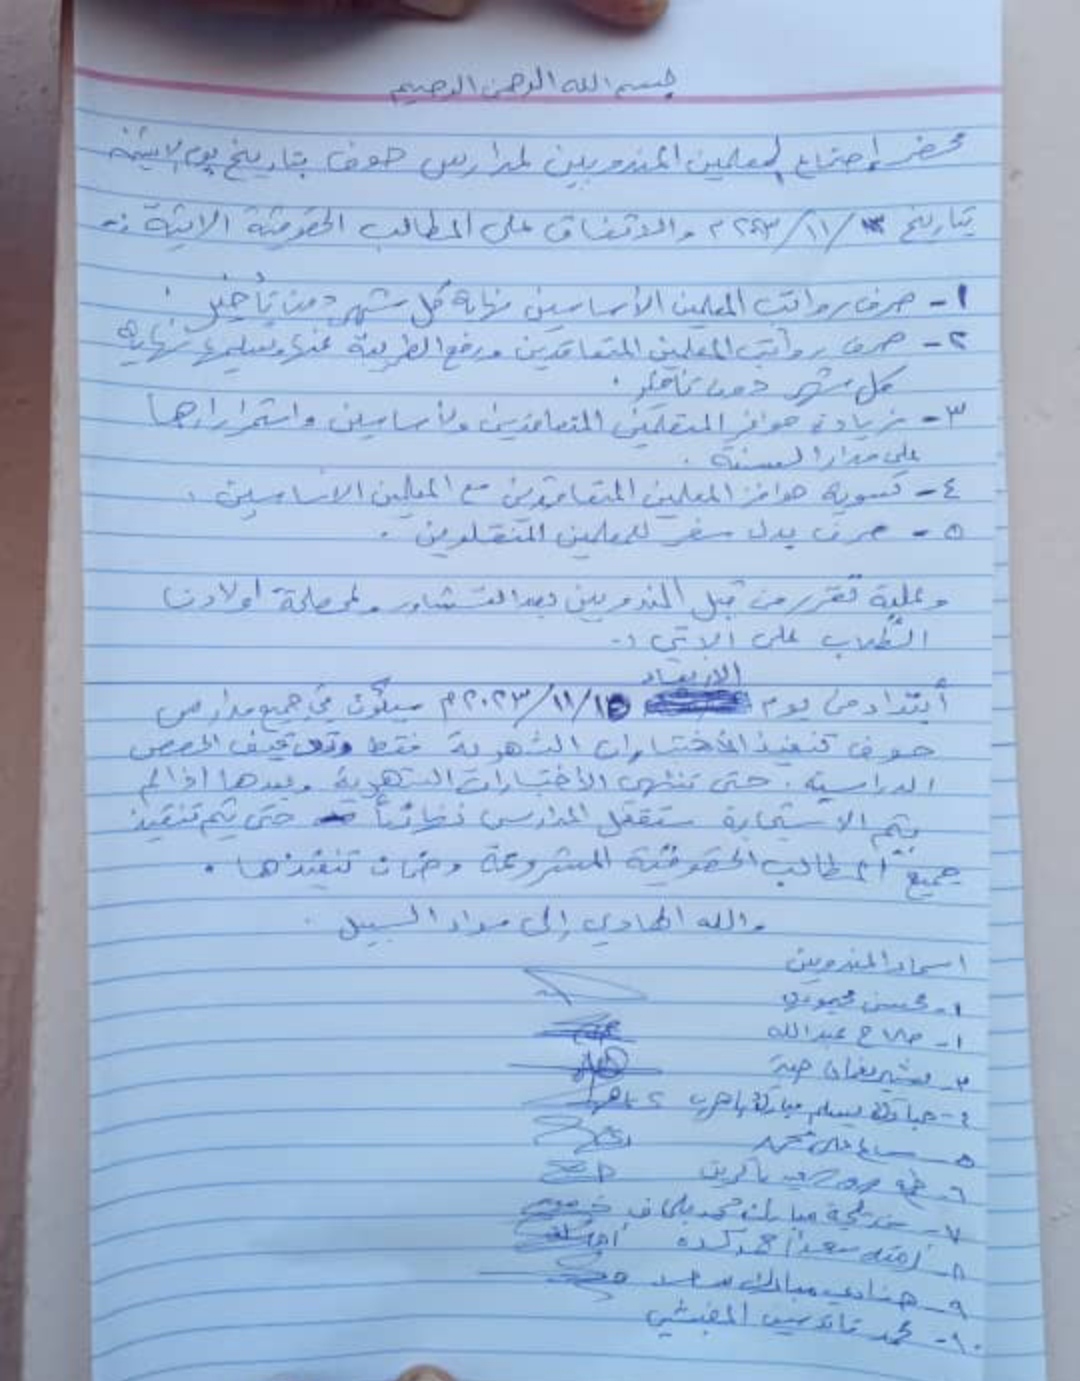 بسم الله الرحمن الرحيم
محضر إجتماع لمعلمين المندوبين لمدارس حوف بتاريخ يوم الاثنين
بتاريخ ١٣/١١/٢٠٢٣م والاتفاق على المطالب الحقوقية الاتية :-
١- صرف رواتب المعلمين الأساسين نهاية كل شهر دون تأخير .
٢- صرف رواتب المعلمين المتعاقدين ورفع الضريبة عنها وتسليمها نهاية
كل شهر دون تأخير .
٣- زيادة حوافز المعلمين المتعاقدين ولأساسين واستمرارها
على مدار السنة .
٤- تسوية حوافز المعلمين المتعاقدين مع المعلمين الاساسين .
٥- صرف بدل سفر للمعلمين المتنقلين .
وعلية تقرر من قبل المندوبين بعد التشاور ولمصلحة اولادنا
الطلاب على الاتي :-
الاربعاء
أبتداء من يوم ١١/٢٠٢٣م سيكون في جميع مدارس
حوف تنفيذ الأختبارات الشهرية فقط وتوقيف الحصص
الدراسية . حتى تنتهي الأختبارات الشهرية وبعدها اذا لم
يتم الاستجابة ستقفل المدارس نهائياً حتى يتم تنفيذ
جميع المطالب الحقوقية المشروعة وضمان تنفيذها .
والله الهادي إلى سواء السبيل .
اسماء المندوبين
١- محسن
١- صلاح عبدالله
٣- بشير
٤- مباركة
٥- محمد
٦- سعيد
٧- خديجة مبارك محمد
٨- امنه سعد احمد
٩- مبارك سعد
١٠- محمد قائد